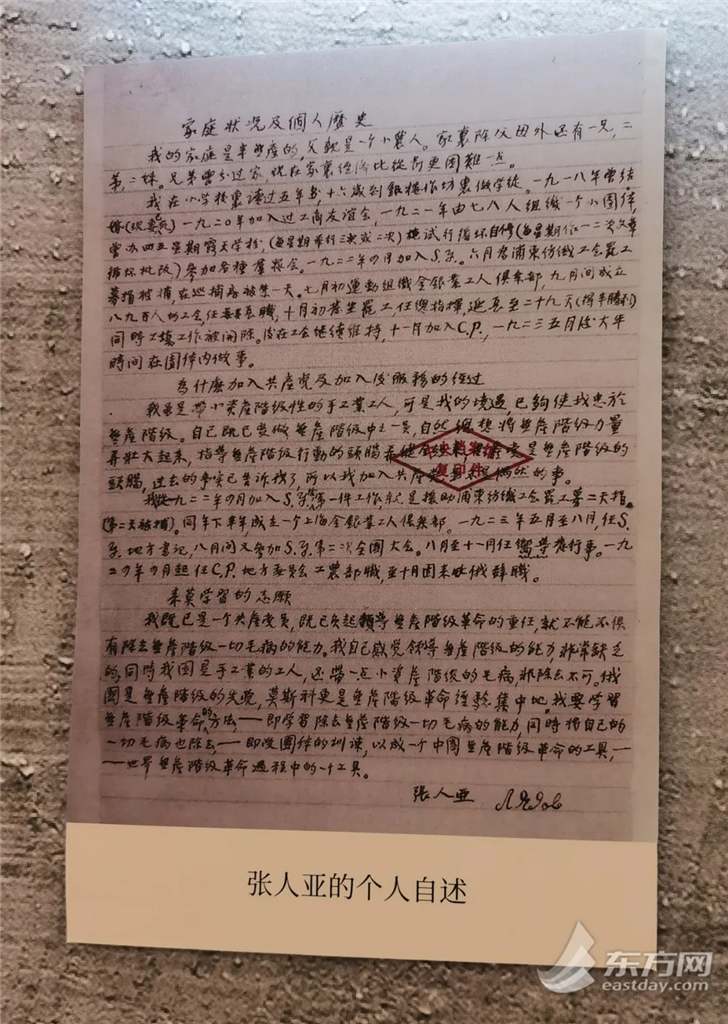 家庭状况及個人歷史
我的家庭是半無產的,父親是一个小農人。家裏除父母外还有一兄,二
弟,二妹。兄弟曾分过家,現在家裏經济比從前更困難一点。
我在小学校裏读过五年书,十六歲到銀樓作坊裏做学徒。一九一八年曾结
婚 一九二〇年加入过工商友谊会,一九二一年由七八人组織一个小团体,
曾办四五星期露天学校,(每星期举行三次或二次)施试行循环自修(每星期作一二次文章
循环批改)参加各種羣衆会。一九二二年四月加入S.Y.。六月为浦東纺織工会罷工
募捐被捕,在巡捕房被禁一天。七月初運動组織金銀業工人俱楽部,九月间成立
八九百人的工会,任委員長職,十月初發生罷工,任總指揮,延長至二十九天(得半勝利)
同時工場工作被開除。後在工会继续維持,十一月加入C.P.,一九二三五月後大半
時间在团体内做事。
為什麽加入共產党及加入後服務的经过
我虽是帶小资產階级性的手工業工人,可是我的境遇,已夠使我忠於
無產階级。自己既已覺做無產階级中之一員,自然總想將無產階级力量
弄壯大起來,指导無產階级行動的頭腦 是無產階级的
頭腦,过去的事实已告诉我了,所以我加入共產党 偶然的事。
我從一九二二年四月加入S.Y.第一件工作,就是援助浦東纺織工会罷工募捐
(第二天被捕)。同年下半年,成立一个上海金銀業工人俱楽部。一九二三年五月至八月,任S.
Y.地方書记,八月间又參加S.Y.第二次全國大会。八月至十一月任嚮导發行事。一九
二四年四月起任C.P.地方委員会工農部職,至十月因来此俄辞職。
来莫学習的志願
我既已是一个共產党員,既已负起領导無產階级革命的重任,就不能不俱
有除去無產階级一切毛病的能力。我自己感觉領导無產階级的能力,非常缺乏
的,同時我因是手工業的工人,还帶一点小資產階级的毛病,非除去不可。俄
國是無產階级的先覺,莫斯科更是無產階级革命经驗集中地。我要学習
無產階级革命的方法,——即学習除去無產階级一切毛病的能力,同時將自己的
一切毛病也除去,——即受團体的训读,以成一个中國無產階级革命的工具,—
—世界無產階级革命过程中的一个工具。
张人亚
张人亚的个人自述
东方网
eastday.com